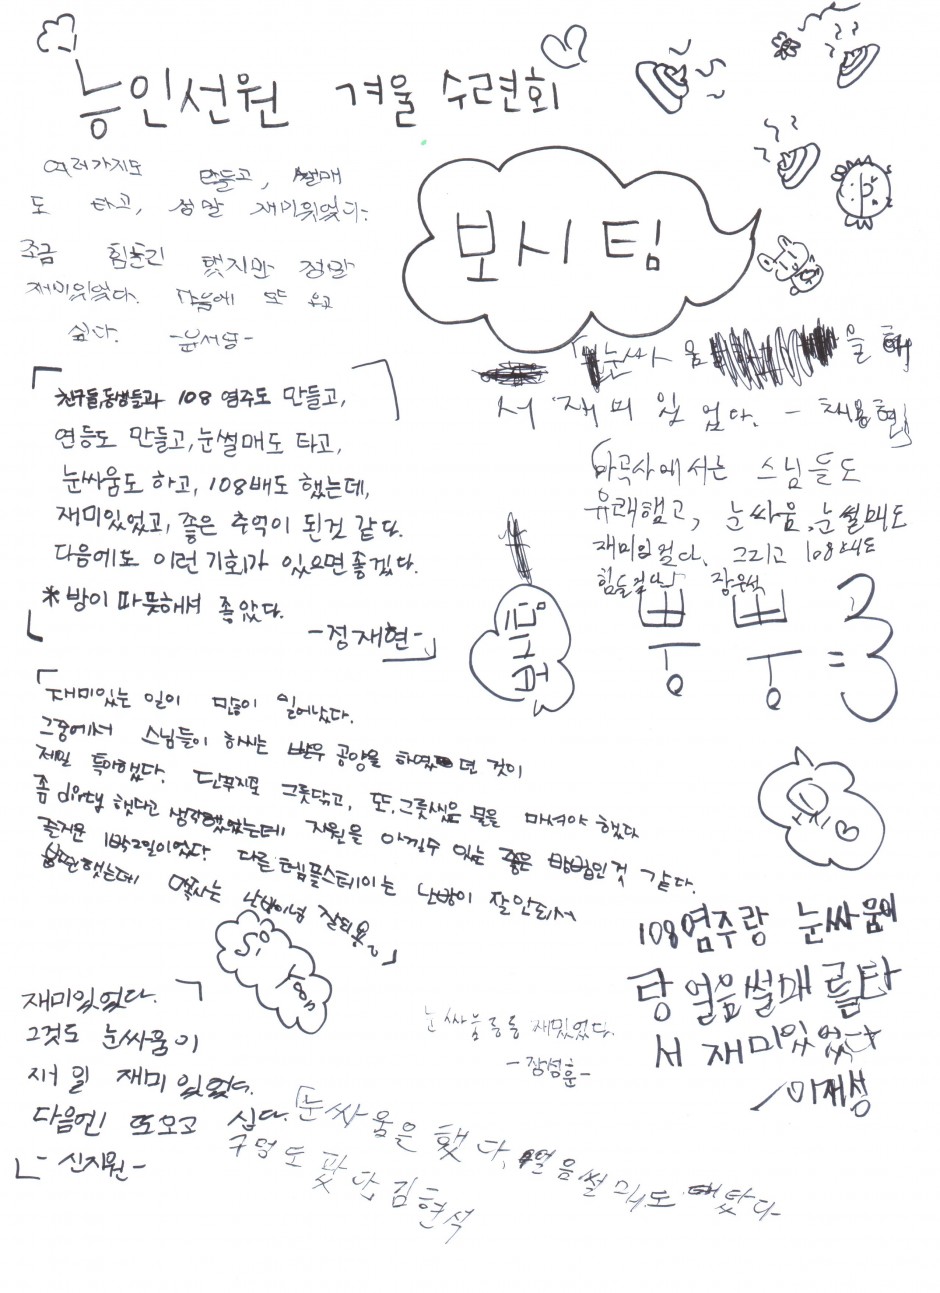 능인선원 겨울 수련회
보시 팀
여러가지도 만들고, 썰매
도 타고, 정말 재미있었다.
조금 힘들긴 했지만 정말
재미있었다. 다음에 또 오고
싶다. -윤서담-
「눈싸움을 해
서 재미있었다. - 채용현」
「친구들,동생들과 108 염주도 만들고,
연등도 만들고, 눈썰매도 타고,
눈싸움도 하고, 108배도 했는데,
재미있었고, 좋은 추억이 된것 같다.
다음에도 이런 기회가 있으면 좋겠다.
*방이 따뜻해서 좋았다.
-정재현-」
마곡사에서는 스님들도
유쾌했고, 눈싸움, 눈썰매도
재미있었다. 그리고 108배도
힘들었다」 장운석
뿡 뿡 =3
「재미있는 일이 많이 일어났다.
그중에서 스님들이 하시는 발우 공양을 하였던 것이
제일 특이했다. 단무지로 그릇닦고, 또, 그릇씻은 물을 마셔야 했다
좀 dirty 했다고 생각했었는데 자원을 아낄수 있는 좋은 방법인것 같다.
즐거운 1박2일이었다. 다른 템플스테이는 난방이 잘안되서
불편했는데 난방이 잘되용~」
Si Yoon
108염주랑 눈싸움이
랑 얼음썰매를타
서 재미있었다
이재성
재미있었다.
그것도 눈싸움이
제일 재미있었다.
다음엔 또오고 십다.
- 신지원-
눈싸움등등 재밌었다.
-장성훈-
「눈싸움은 했다, 얼음썰매도 탔다
구멍도 팠다, 김현석